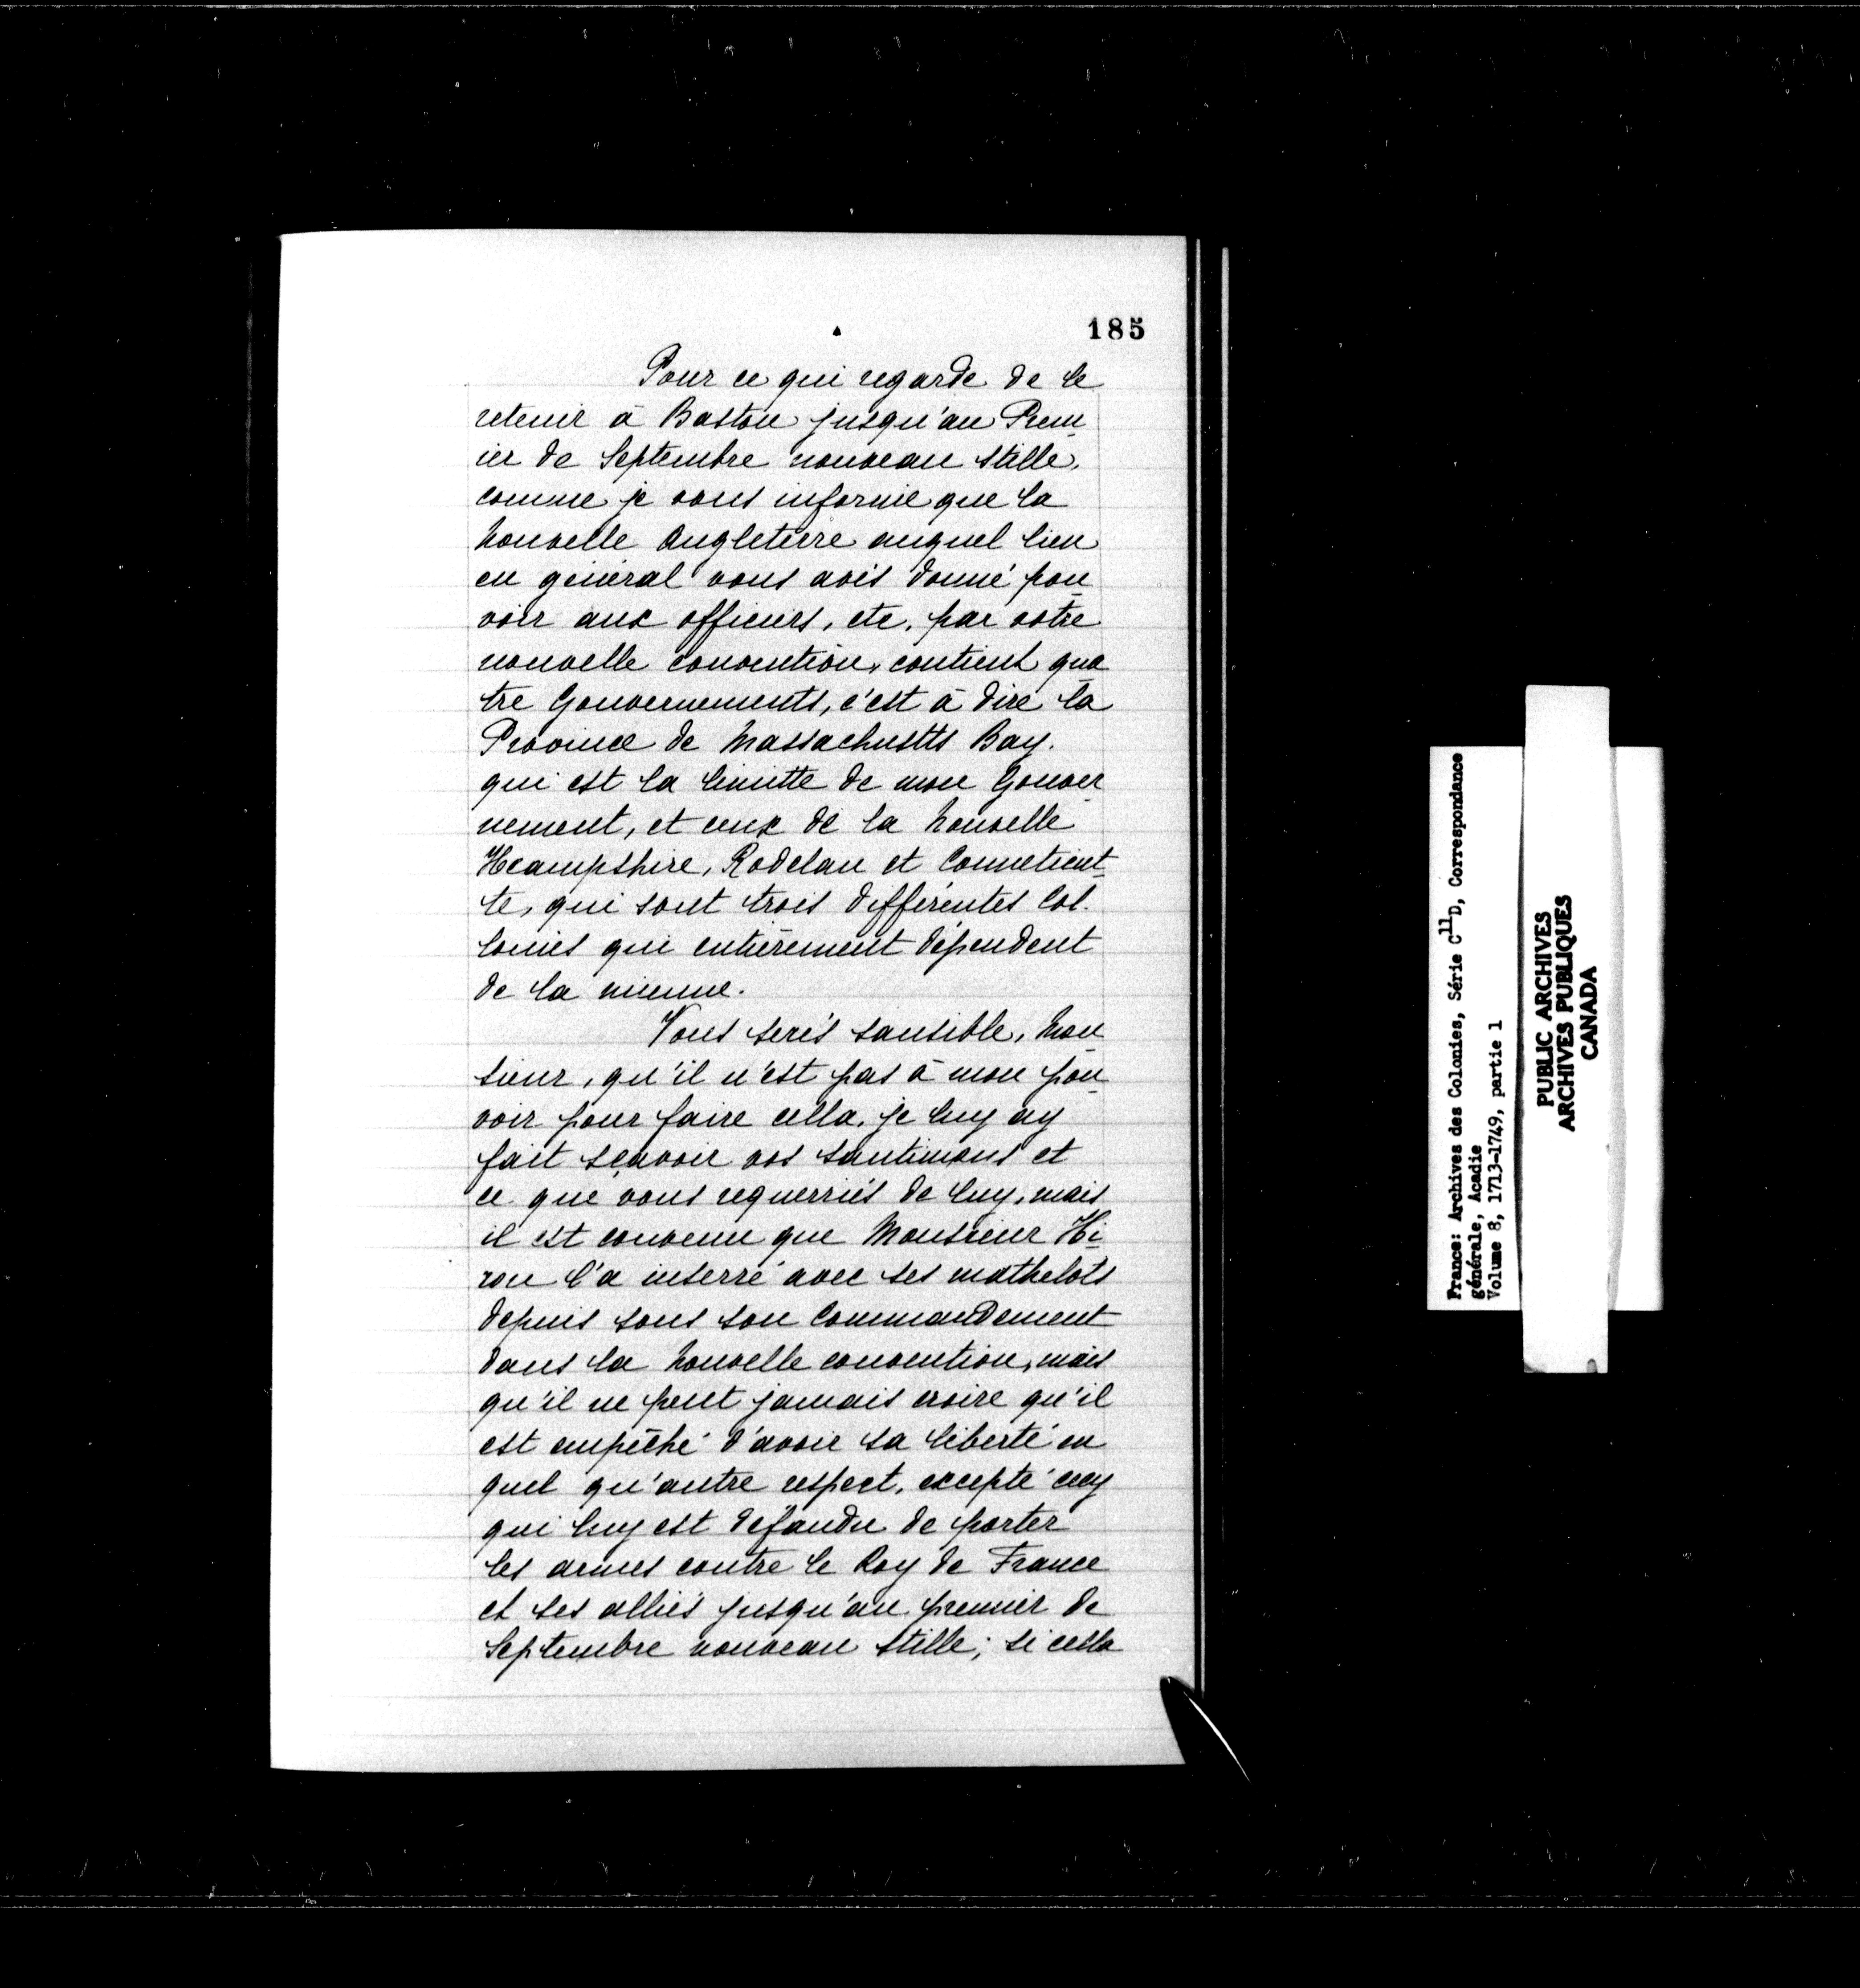 185
Pour ce qui regarde de le
retenir à Baston jusqu'au Prem
ier de Septembre nouveau stille,
comme je vous informe que la
Nouvelle Angleterre auquel lieu
en général vous avés donné pou
voir aux officiers, etc, par votre
nouvelle convention, contient qua
tre Gouvernements, c'est à dire la
Province de Massachustts Bay.
qui est la limitte de mon Gouver
nement, et ceux de la Nouvelle
Heampshire, Rodelan et Connetieut
te, qui sont trois différentes Col.
lonies qui entièrement dépendent
de la mienne.
Vous serés sansible, Mon
sieur, qu'il n'est pas à mon pou
voir pour faire cella, je luy ay
fait sçavoir vos santimans et
ce que vous requerriés de luy, mais
il est convenu que Monsieur Hi
rou l'a inserré avec ses mathelots
depuis sous son Commandement
dans la Nouvelle convention, mais
qu'il ne peut jamais croire qu'il
est empêché d'avoir sa liberté en
quel qu'autre respect, excepté cecy
qui luy est défandu de porter
les armes contre le Roy de France
et ses alliés jusqu'au premier de
Septembre nouveau stille; si cella
France: Archives des Colonies, Série C11D, Correspondance
générale, Acadie
Volume 8, 1713-1749, partie 1
PUBLIC ARCHIVES
ARCHIVES PUBLIQUES
CANADA